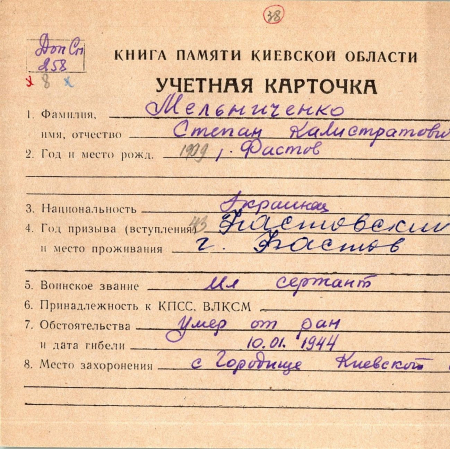 38
Доп Сп
258
8
КНИГА ПАМЯТИ КИЕВСКОЙ ОБЛАСТИ
УЧЕТНАЯ КАРТОЧКА
1. Фамилия, Мельниченко
имя, отчество Степан Калистратови
2. Год и место рожд. 1909 г. Фастов
3. Национальность Украинец
4. Год призыва (вступления) 43 Фастовский
и место проживания г. Фастов
5. Воинское звание Мл сержант
6. Принадлежность к КПСС, ВЛКСМ
7. Обстоятельства умер от ран
и дата гибели 10.01.1944
8. Место захоронения с Городище Киевской